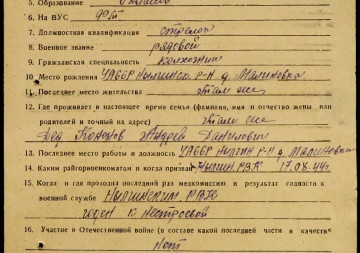 5. Образование 6 классов
6. На ВУС 99т
7. Должностная квалификация стрелок
8. Военное звание рядовой
9. Гражданская специальность колхозник
10. Место рождения УАССР Нылгинск. р-н д. Малиновка
11. Последнее место жительства там же
12. Где проживает в настоящее время семья (фамилия, имя и отчество жены или
родителей и точный их адрес) там же
дед Кононов Андрей Данилович
13. Последнее место работы и должность УАССР Нылгин р-н д. Малиновка
14. Каким райгорвоенкоматом и когда призван Нылгин. РВК 17.08.44г
15. Когда и где проходил последний раз медкомиссию и результат годности к
военной службе Нылгинским РВК
годен к нестроевой
16. Участие в Отечественной войне (в составе какой последней части в качестве
нет